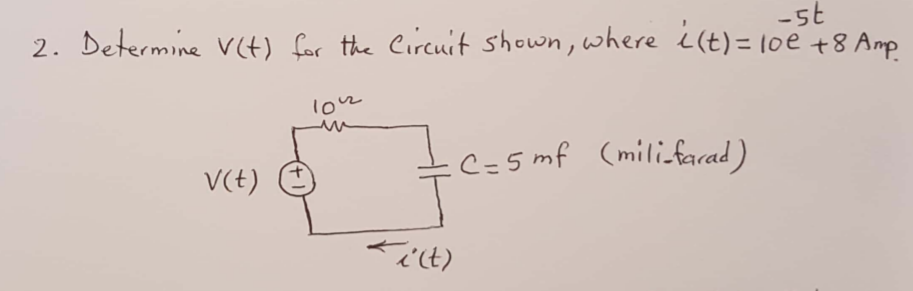 2. Determine V(t) for the Circuit shown, where i(t) = 10e^-5t + 8 Amp.
10Ω
V(t) + - C = 5 mf (mili-farad)
i(t)